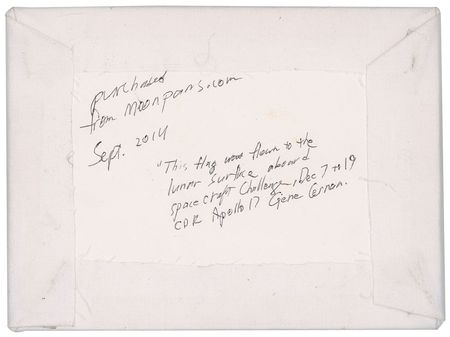 purchased
from moonpans.com
Sept. 2014
"This flag was flown to the
lunar surface aboard
spacecraft Challenge, Dec 7 to 19
CDR Apollo 17 Gene Cernan.